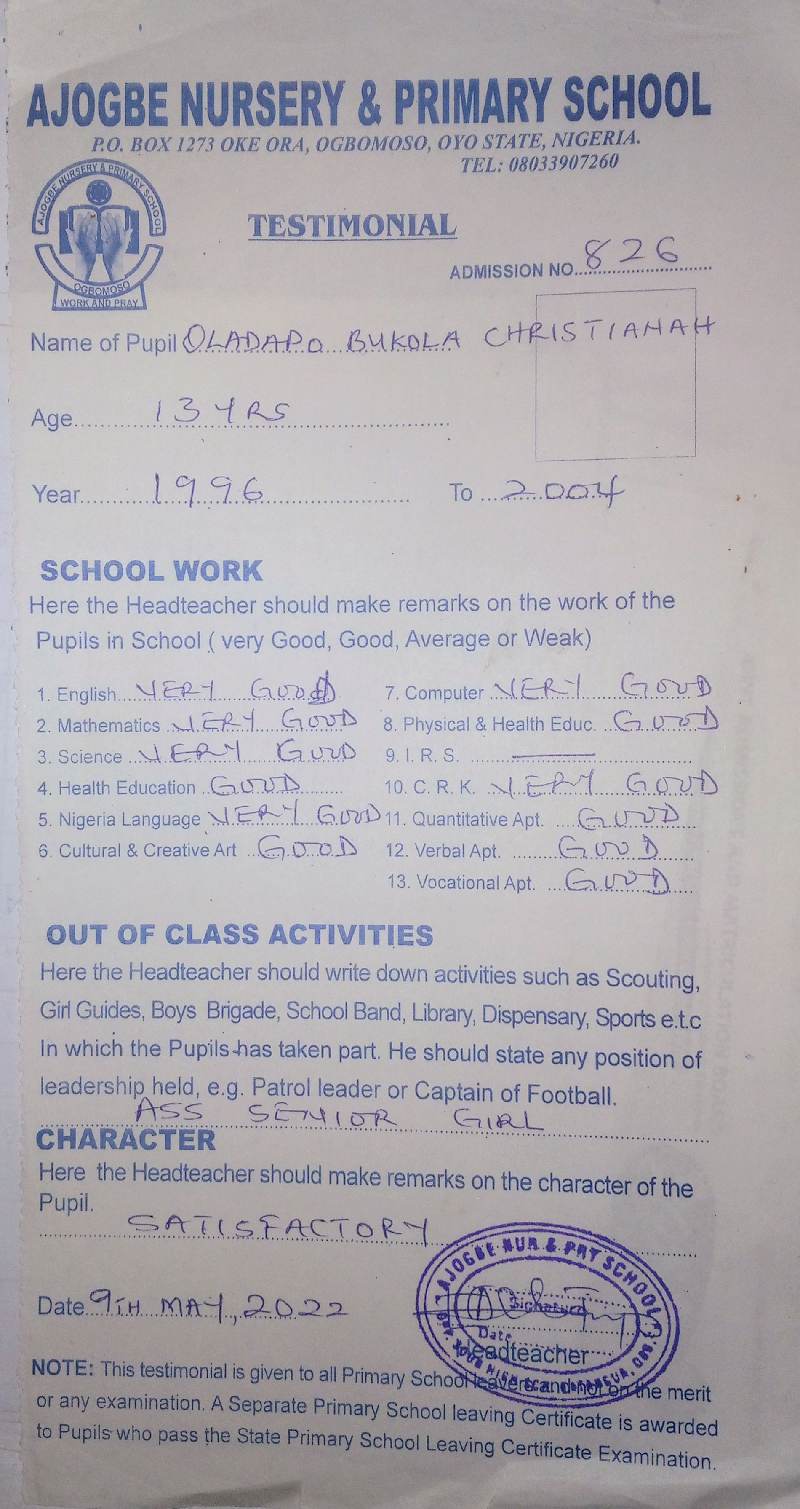 AJOGBE NURSERY & PRIMARY SCHOOL
P.O. BOX 1273 OKE ORA, OGBOMOSO, OYO STATE, NIGERIA.
TEL: 08033907260
AJOGBE NURSERY & PRIMARY SCHOOL
OGBOMOSO
WORK AND PRAY
TESTIMONIAL
ADMISSION NO. 826
Name of Pupil OLADAPO BUKOLA CHRISTIANAH
Age 13 YRS
Year 1996 To 2004
SCHOOL WORK
Here the Headteacher should make remarks on the work of the
Pupils in School ( very Good, Good, Average or Weak)
1. English VERY GOOD
2. Mathematics VERY GOOD
3. Science VERY GOOD
4. Health Education GOOD
5. Nigeria Language VERY GOOD
6. Cultural & Creative Art GOOD
7. Computer VERY GOOD
8. Physical & Health Educ. GOOD
9. I. R. S. ———
10. C. R. K. VERY GOOD
11. Quantitative Apt. GOOD
12. Verbal Apt. GOOD
13. Vocational Apt. GOOD
OUT OF CLASS ACTIVITIES
Here the Headteacher should write down activities such as Scouting,
Girl Guides, Boys Brigade, School Band, Library, Dispensary, Sports e.t.c
In which the Pupils has taken part. He should state any position of
leadership held, e.g. Patrol leader or Captain of Football.
ASS SENIOR GIRL
CHARACTER
Here the Headteacher should make remarks on the character of the
Pupil.
SATISFACTORY
AJOGBE NUR & PRY SCHOOL
Signature
Date
Date 9TH MAY, 2022
Headteacher
NOTE: This testimonial is given to all Primary School leavers and not on the merit
or any examination. A Separate Primary School leaving Certificate is awarded
to Pupils who pass the State Primary School Leaving Certificate Examination.